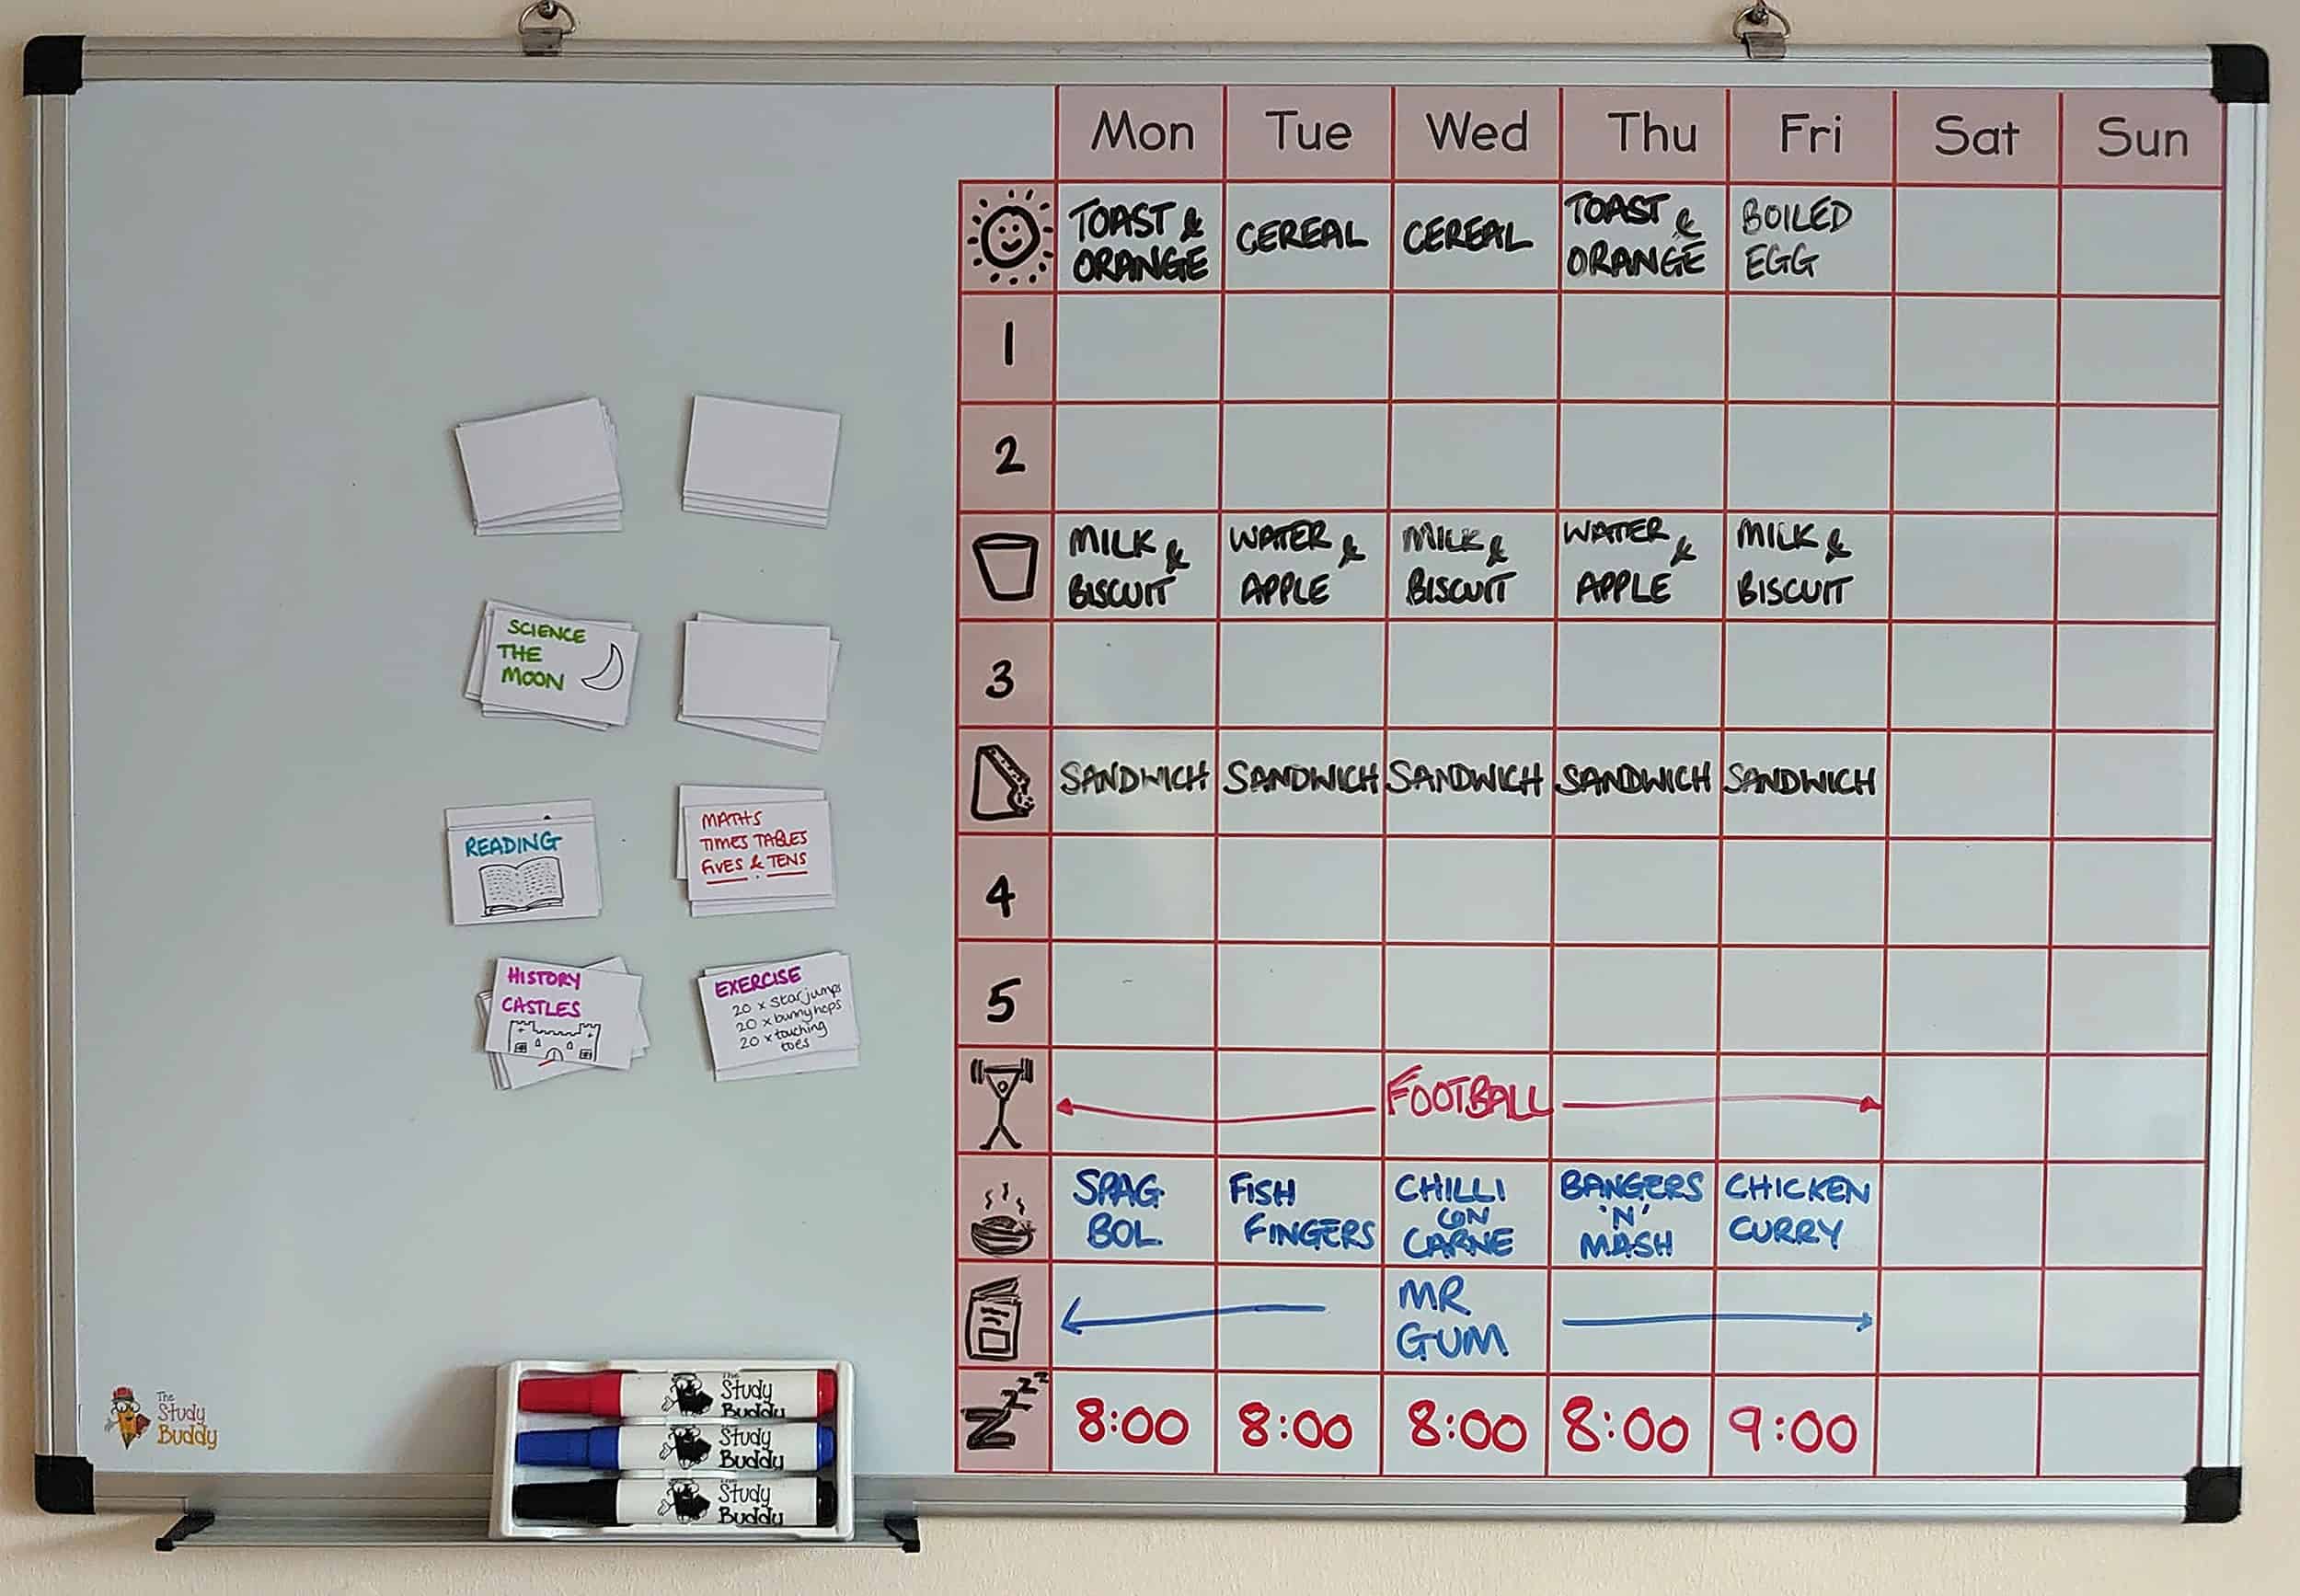 Mon Tue Wed Thu Fri Sat Sun
TOAST & ORANGE
CEREAL
CEREAL
TOAST & ORANGE
BOILED EGG
1
2
MILK & BISCUIT
WATER & APPLE
MILK & BISCUIT
WATER & APPLE
MILK & BISCUIT
3
SANDWICH SANDWICH SANDWICH SANDWICH SANDWICH
4
5
FOOTBALL
SPAG BOL.
FISH FINGERS
CHILLI CON CARNE
BANGERS 'N' MASH
CHICKEN CURRY
MR GUM
Zzzz
8:00 8:00 8:00 8:00 9:00
SCIENCE
THE
MOON
READING
MATHS
TIMES TABLES
FIVES & TENS
HISTORY
CASTLES
EXERCISE
20 x star jumps
20 x bunny hops
20 x touching
toes
The
Study
Buddy
The
Study
Buddy
The
Study
Buddy
The
Study
Buddy